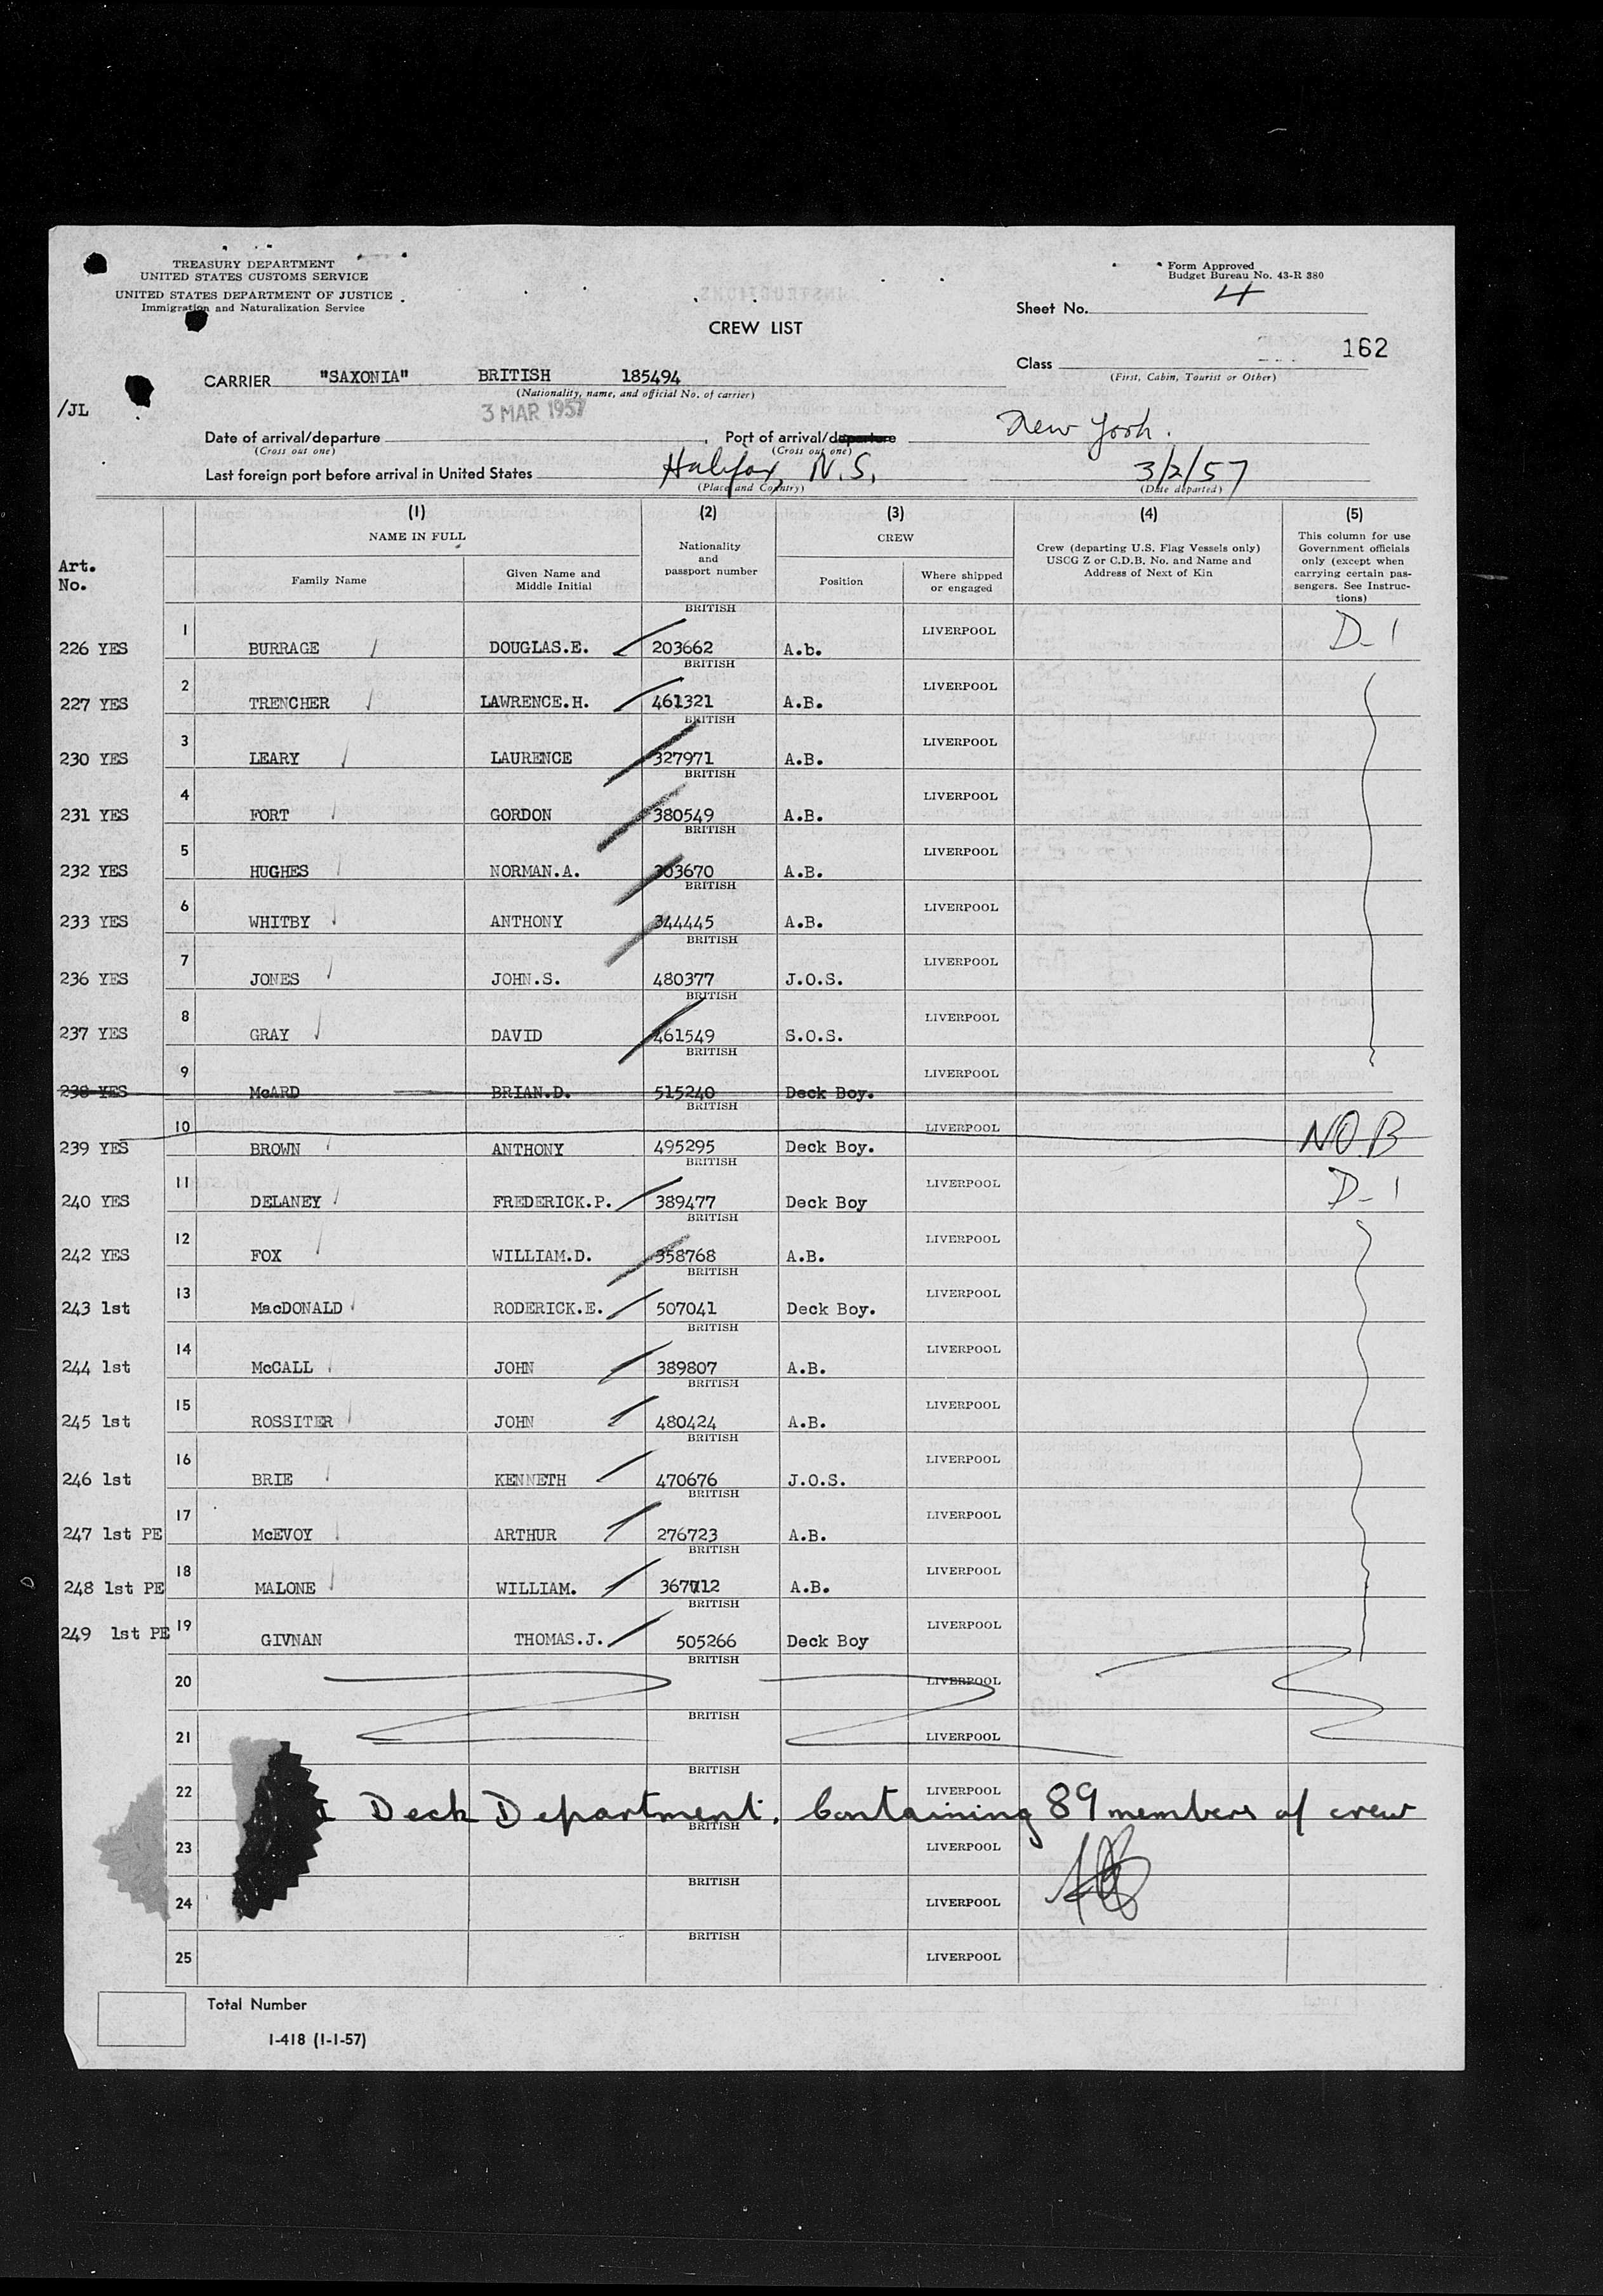 TREASURY DEPARTMENT
UNITED STATES CUSTOMS SERVICE
UNITED STATES DEPARTMENT OF JUSTICE
Immigration and Naturalization Service
Form Approved
Budget Bureau No. 43-R 380
Sheet No. 4
CREW LIST
162
Class
(First, Cabin, Tourist or Other)
CARRIER "SAXONIA" BRITISH 185494
(Nationality, name, and official No. of carrier)
/JL
3 MAR 1957
Date of arrival/departure , Port of arrival/departure New York.
(Cross out one) (Cross out one)
Last foreign port before arrival in United States Halifax, N.S. 3/2/57
(Place and Country) (Date departed)
(1) (2) (3) (4) (5)
NAME IN FULL
Nationality and passport number
CREW
Crew (departing U.S. Flag Vessels only) USCG Z or C.D.B. No. and Name and Address of Next of Kin
This column for use Government officials only (except when carrying certain passengers. See Instructions)
Art. No.
Family Name
Given Name and Middle Initial
Position
Where shipped or engaged
226 YES 1 BURRAGE DOUGLAS.E. BRITISH 203662 A.b. LIVERPOOL D-1
227 YES 2 TRENCHER LAWRENCE.H. BRITISH 461321 A.B. LIVERPOOL
230 YES 3 LEARY LAURENCE BRITISH 327971 A.B. LIVERPOOL
231 YES 4 FORT GORDON BRITISH 380549 A.B. LIVERPOOL
232 YES 5 HUGHES NORMAN.A. BRITISH 303670 A.B. LIVERPOOL
233 YES 6 WHITBY ANTHONY BRITISH 344445 A.B. LIVERPOOL
236 YES 7 JONES JOHN.S. BRITISH 480377 J.O.S. LIVERPOOL
237 YES 8 GRAY DAVID BRITISH 461549 S.O.S. LIVERPOOL
238 YES 9 McARD BRIAN.D. BRITISH 515240 Deck Boy. LIVERPOOL
239 YES 10 BROWN ANTHONY BRITISH 495295 Deck Boy. LIVERPOOL NOB
240 YES 11 DELANEY FREDERICK.P. BRITISH 389477 Deck Boy LIVERPOOL D-1
242 YES 12 FOX WILLIAM.D. BRITISH 358768 A.B. LIVERPOOL
243 1st 13 MacDONALD RODERICK.E. BRITISH 507041 Deck Boy. LIVERPOOL
244 1st 14 McCALL JOHN BRITISH 389807 A.B. LIVERPOOL
245 1st 15 ROSSITER JOHN BRITISH 480424 A.B. LIVERPOOL
246 1st 16 BRIE KENNETH BRITISH 470676 J.O.S. LIVERPOOL
247 1st PE 17 McEVOY ARTHUR BRITISH 276723 A.B. LIVERPOOL
248 1st PE 18 MALONE WILLIAM. BRITISH 367712 A.B. LIVERPOOL
249 1st PE 19 GIVNAN THOMAS.J. BRITISH 505266 Deck Boy LIVERPOOL
20 BRITISH LIVERPOOL
21 BRITISH LIVERPOOL
22 BRITISH LIVERPOOL
Deck Department. Containing 89 members of crew
23 BRITISH LIVERPOOL
24 BRITISH LIVERPOOL
25 BRITISH LIVERPOOL
Total Number
I-418 (1-1-57)